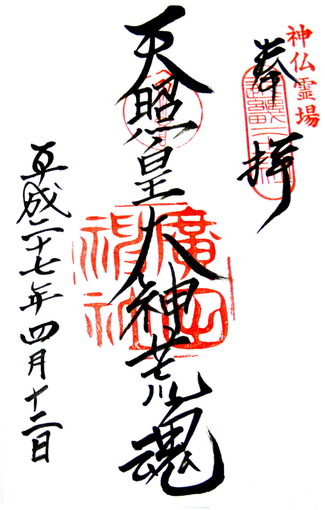 神仏霊場
奉拝
天照皇大神荒魂
廣田神社
平成二十七年四月十二日